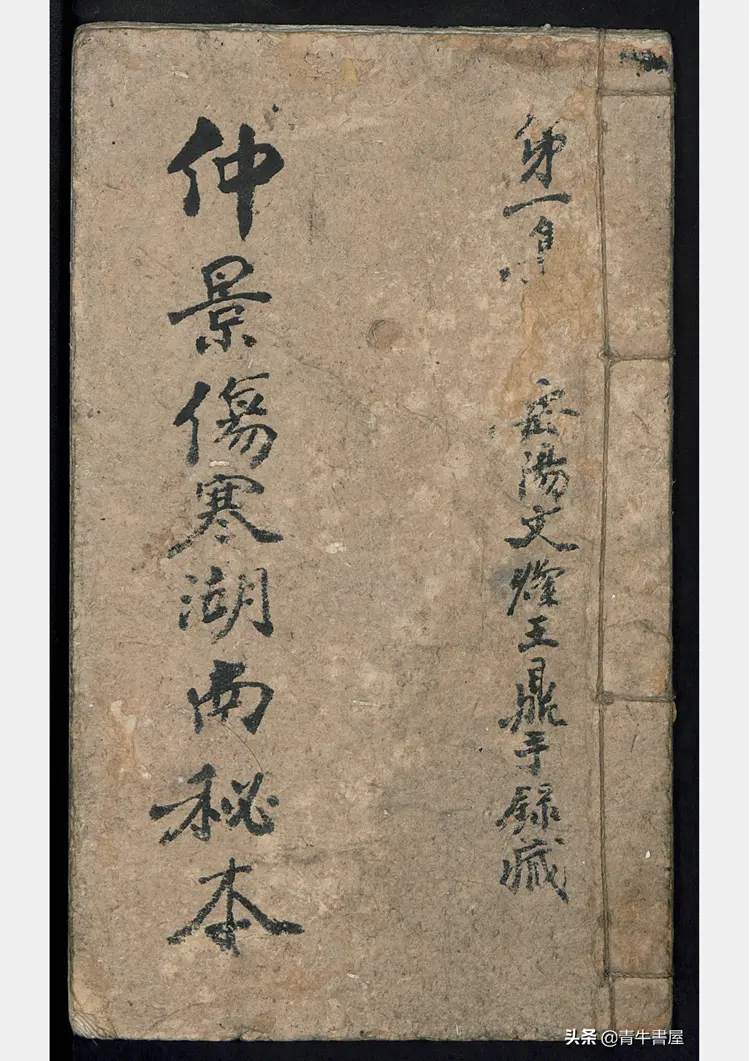 第一集
陽文燦王鼎手錄藏
仲景傷寒湖南秘本
头条 @青牛書屋